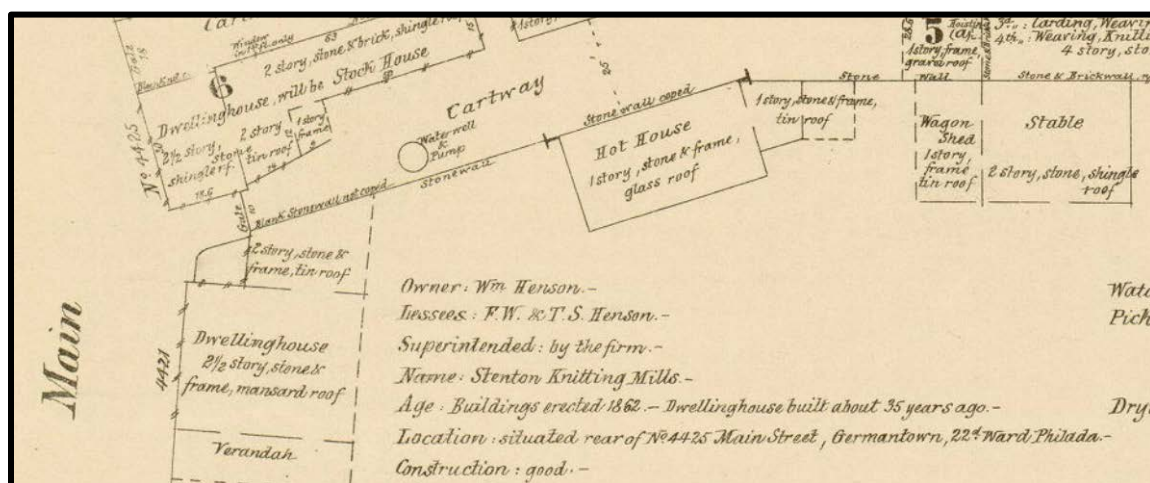 Window
on 1st fl. only
63
2 story, stone & brick, shingle rf.
6
Dwellinghouse, will be Stock House
2 story
Stone
tin roof
1 story
frame
2½ story,
shingle rf.
18.6
Gate
No. 4425
Cartway
Water well
&
Pump
Stonewall
Blank Stonewall not coped
Gate
Stone wall coped
25
Hot House
1 story, stone & frame,
glass roof
1 story, stone & frame,
tin roof
Stone
wall
5
Hoisting
1 story, frame,
gravel roof
3d „ : Carding, Weavin
4th „ : Weaving, Knitti
4 story, sto
Stone & Brickwall
Wagon
Shed
1 story,
frame
tin roof
Stable
2 story, stone, shingle
roof
2 story, stone &
frame, tin roof
Main
4421
Dwellinghouse
2½ story, stone &
frame, mansard roof
Verandah
Owner : Wm Henson.-
Lessees : F.W. & T.S. Henson.-
Superintended : by the firm.-
Name : Stenton Knitting Mills.-
Age : Buildings erected 1862.- Dwellinghouse built about 35 years ago.-
Location : situated rear of No 4425 Main Street, Germantown, 22d Ward Philada.-
Construction : good.-
Wate
Pick
Dry